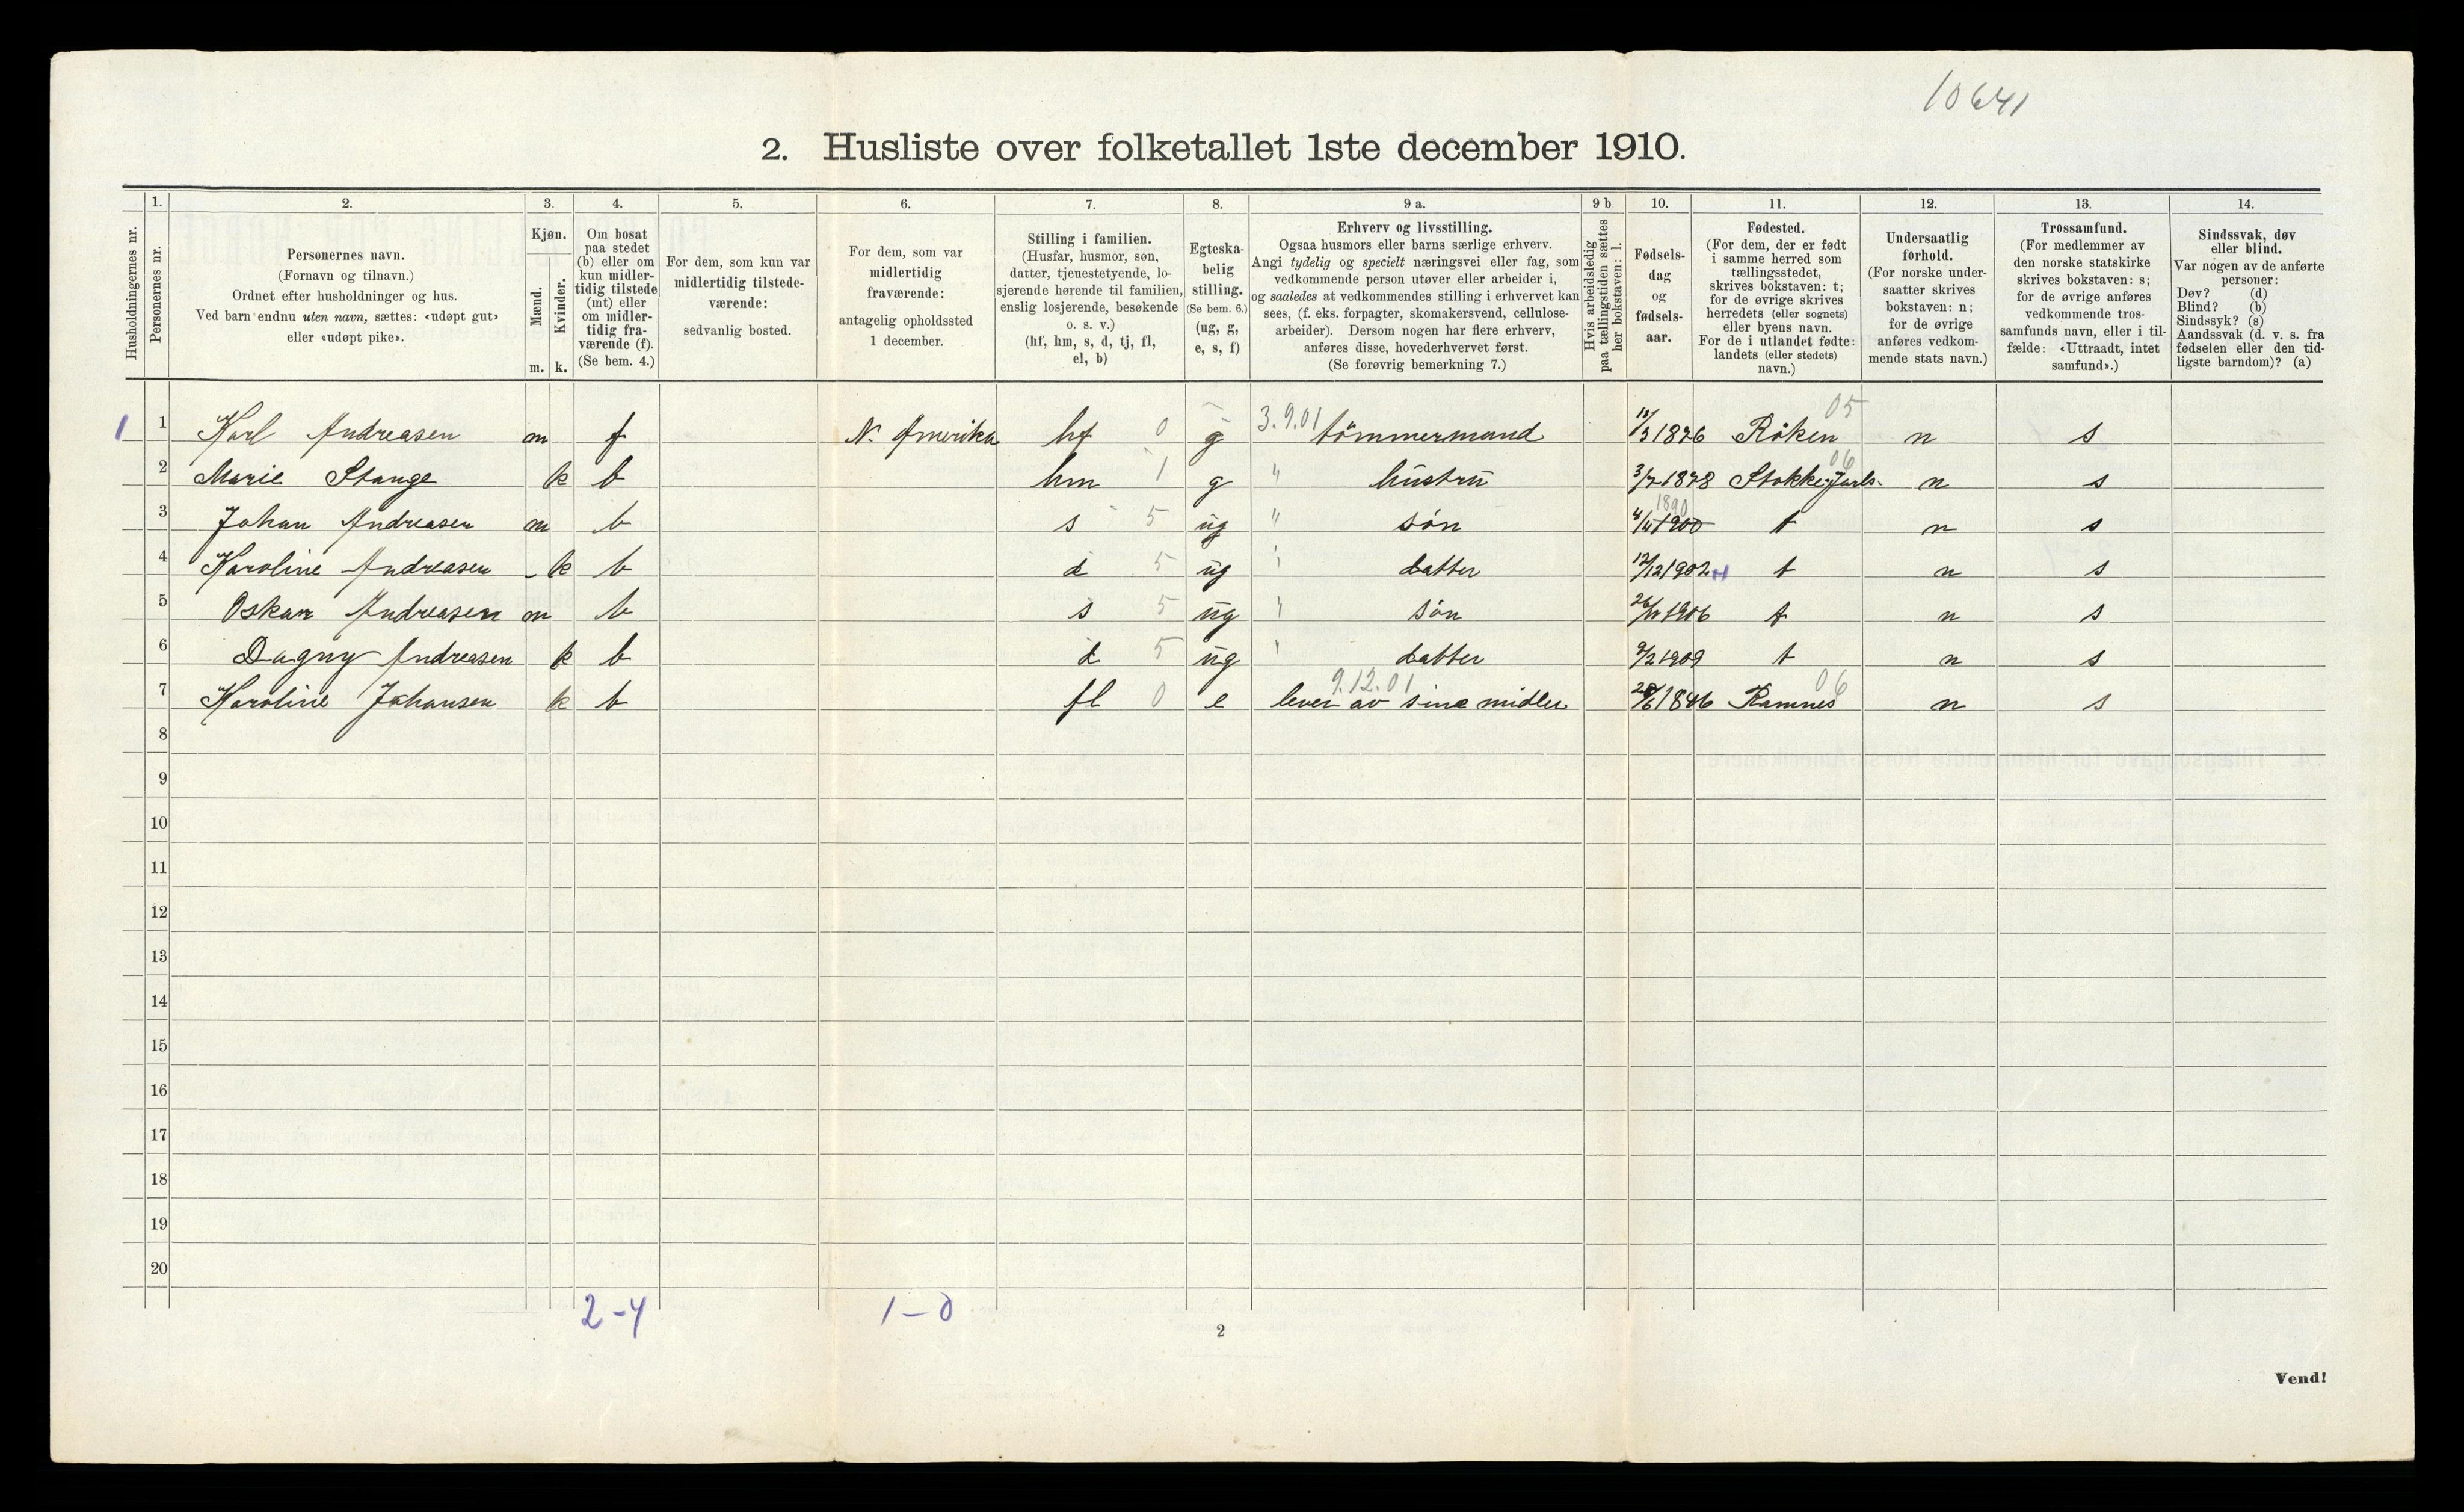 10641
2. Husliste over folketallet 1ste december 1910.
1. 2. 3. 4. 5. 6. 7. 8. 9 a. 9 b 10. 11. 12. 13. 14.
Husholdningernes nr.
Personernes nr.
Personernes navn.
(Fornavn og tilnavn.)
Ordnet efter husholdninger og hus.
Ved barn endnu uten navn, sættes: «udøpt gut»
eller «udøpt pike».
Kjøn.
Mænd.
Kvinder.
m. k.
Om bosat
paa stedet
(b) eller om
kun midler-
tidig tilstede
(mt) eller
om midler-
tidig fra-
værende (f).
(Se bem. 4.)
For dem, som kun var
midlertidig tilstede-
værende:
sedvanlig bosted.
For dem, som var
midlertidig
fraværende:
antagelig opholdssted
1 december.
Stilling i familien.
(Husfar, husmor, søn,
datter, tjenestetyende, lo-
sjerende hørende til familien,
enslig losjerende, besøkende
o. s. v.)
(hf, hm, s, d, tj, fl,
el, b)
Egteska-
belig
stilling.
(Se bem. 6.)
(ug, g,
e, s, f)
Erhverv og livsstilling.
Ogsaa husmors eller barns særlige erhverv.
Angi tydelig og specielt næringsvei eller fag, som
vedkommende person utøver eller arbeider i,
og saaledes at vedkommendes stilling i erhvervet kan
sees, (f. eks. forpagter, skomakersvend, cellulose-
arbeider). Dersom nogen har flere erhverv,
anføres disse, hovederhvervet først.
(Se forøvrig bemerkning 7.)
Hvis arbeidsledig
paa tællingstiden sættes
her bokstaven: l.
Fødsels-
dag
og
fødsels-
aar.
Fødested.
(For dem, der er født
i samme herred som
tællingsstedet,
skrives bokstaven: t;
for de øvrige skrives
herredets (eller sognets)
eller byens navn.
For de i utlandet fødte:
landets (eller stedets)
navn.)
Undersaatlig
forhold.
(For norske under-
saatter skrives
bokstaven: n;
for de øvrige
anføres vedkom-
mende stats navn.)
Trossamfund.
(For medlemmer av
den norske statskirke
skrives bokstaven: s;
for de øvrige anføres
vedkommende tros-
samfunds navn, eller i til-
fælde: «Uttraadt, intet
samfund».)
Sindssvak, døv
eller blind.
Var nogen av de anførte
personer:
Døv? (d)
Blind? (b)
Sindssyk? (s)
Aandssvak (d. v. s. fra
fødselen eller den tid-
ligste barndom)? (a)
1 1 Karl Andreasen m f N. Amerika hf 0 g 3.9.01 tömmermand /3 1876 Röken 05 n s
2 Marie Stange k b hm 1 g " hustru 3/7 1878 Stokke Jarls. 06 n s
3 Johan Andreasen m b s 5 ug " søn 4/11 1900 1890 t n s
4 Karoline Andreasen - k b d 5 ug " datter 12/12 1902 t n s
5 Oskar Andreasen m b s 5 ug " søn 26/11 1906 t n s
6 Dagny Andreasen k b d 5 ug " datter 9/2 1909 t n s
7 Karoline Johansen k b fl 0 e 9.12.01 lever av sine midler /6 1846 Ramnes 06 n s
8
9
10
11
12
13
14
15
16
17
18
19
20
2-4 1-0
2
Vend!